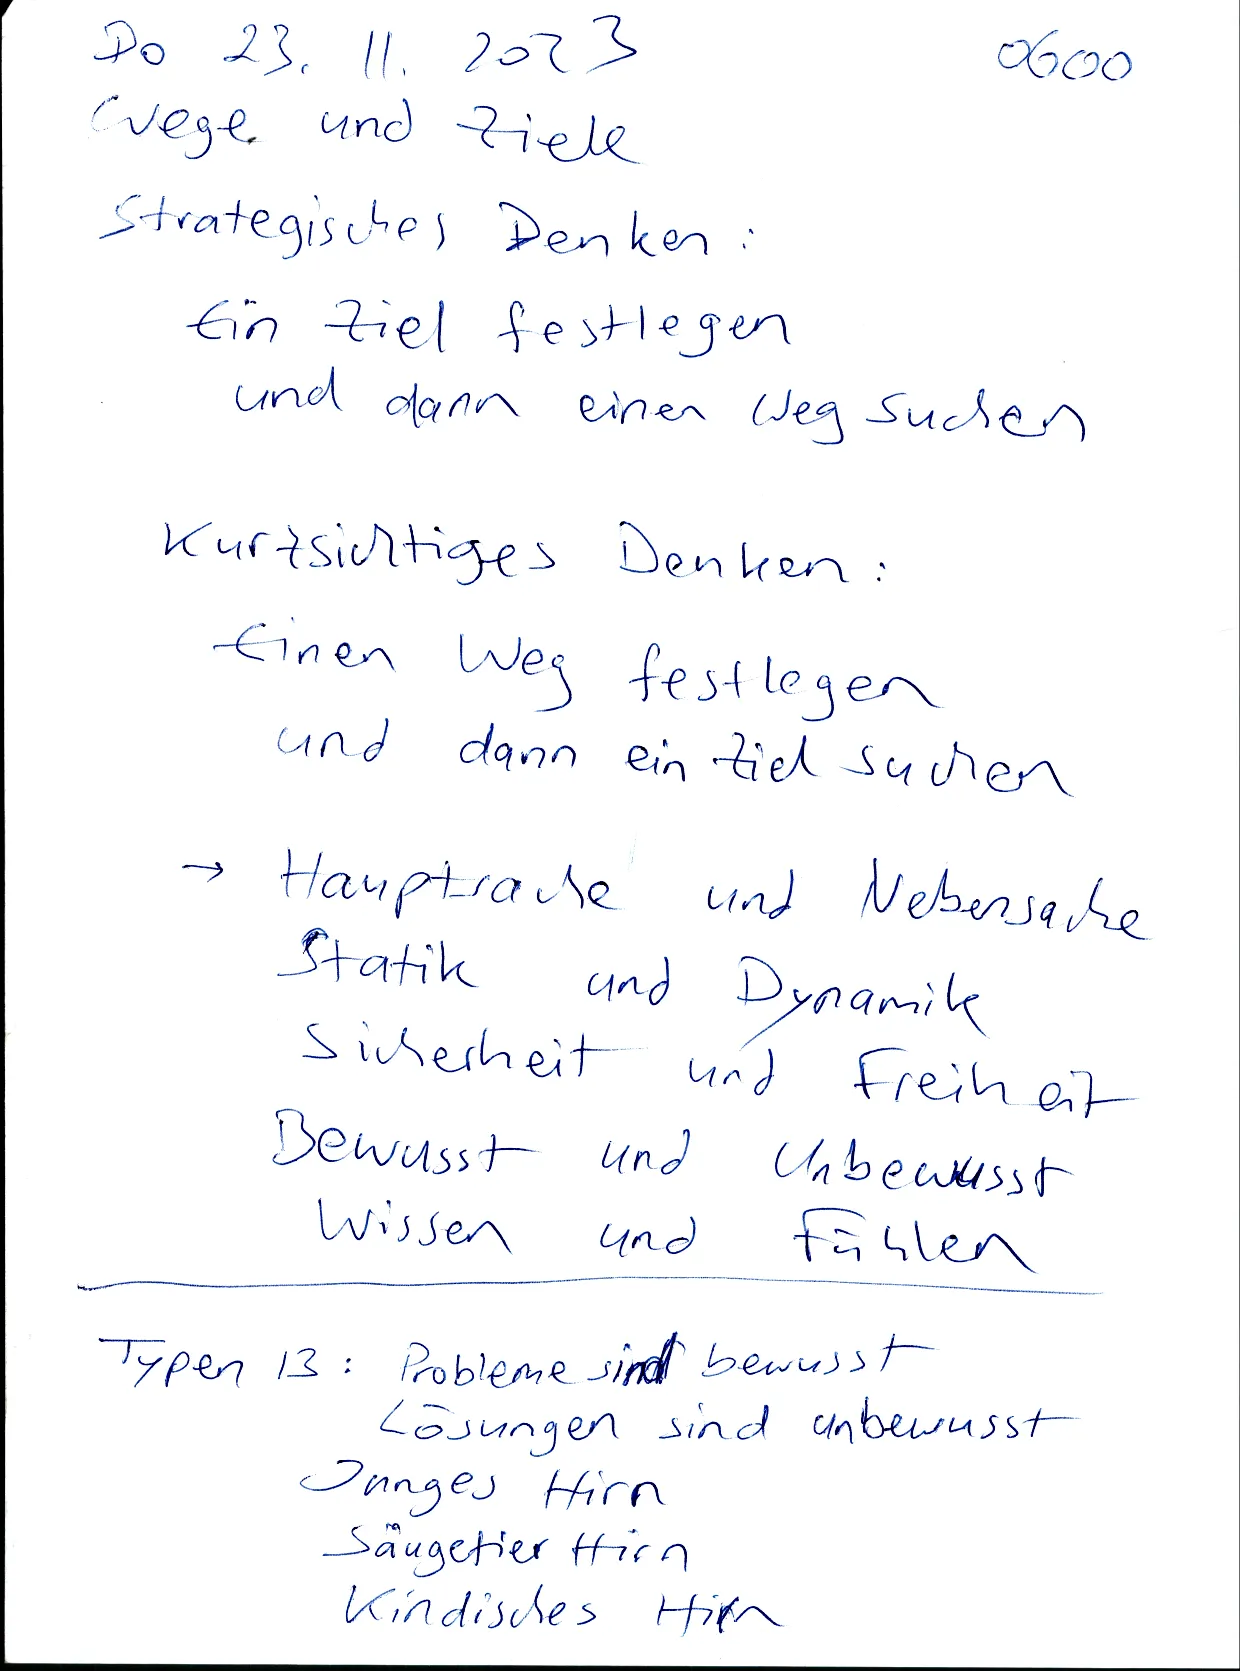 Do 23. 11. 2023 0600
Wege und Ziele
Strategisches Denken:
Ein Ziel festlegen
und dann einen Weg suchen
Kurtzsichtiges Denken:
Einen Weg festlegen
und dann ein Ziel suchen
→ Hauptsache und Nebensache
Statik und Dynamik
Sicherheit und Freiheit
Bewusst und Unbewusst
Wissen und Fühlen
Typen 13: Probleme sind bewusst
Lösungen sind unbewusst
Junges Hirn
Säugetier Hirn
Kindisches Hirn